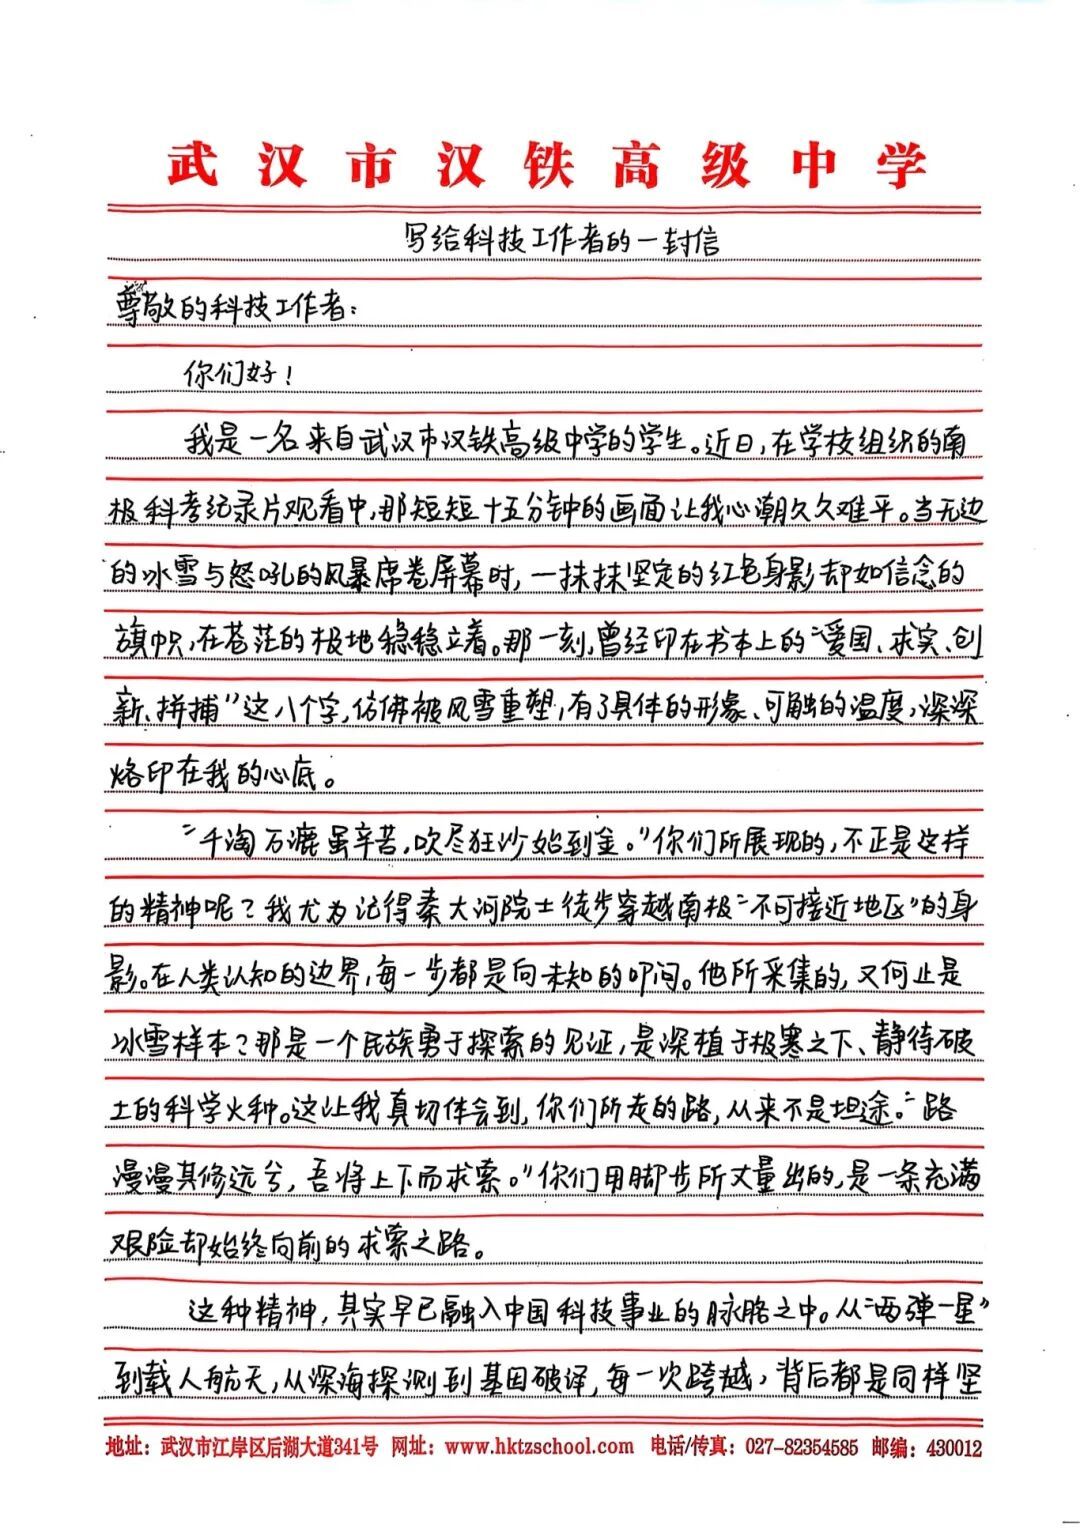 武汉市汉铁高级中学
写给科技工作者的一封信
尊敬的科技工作者：
你们好！
我是一名来自武汉市汉铁高级中学的学生。近日，在学校组织的南
极科考纪录片观看中，那短短十五分钟的画面让我心潮久久难平。当无边
的冰雪与怒吼的风暴席卷屏幕时，一抹抹坚定的红色身影却如信念的
旗帜，在苍茫的极地稳稳立着。那一刻，曾经印在书本上的“爱国、求实、创
新、拼捕”这八个字，仿佛被风雪重塑，有了具体的形象、可触的温度，深深
烙印在我的心底。
“千淘万漉虽辛苦，吹尽狂沙始到金。”你们所展现的，不正是这样
的精神呢？我尤为记得秦大河院士徒步穿越南极“不可接近地区”的身
影。在人类认知的边界，每一步都是向未知的叩问。他所采集的，又何止是
冰雪样本？那是一个民族勇于探索的见证，是深植于极寒之下、静待破
土的科学火种。这让我真切体会到，你们所走的路，从来不是坦途。“路
漫漫其修远兮，吾将上下而求索。”你们用脚步所丈量出的，是一条充满
艰险却始终向前的求索之路。
这种精神，其实早已融入中国科技事业的脉胳之中。从“两弹一星”
到载人航天，从深海探测到基因破译，每一次跨越，背后都是同样坚
地址：武汉市江岸区后湖大道341号 网址：www.hktzschool.com 电话/传真：027-82354585 邮编：430012